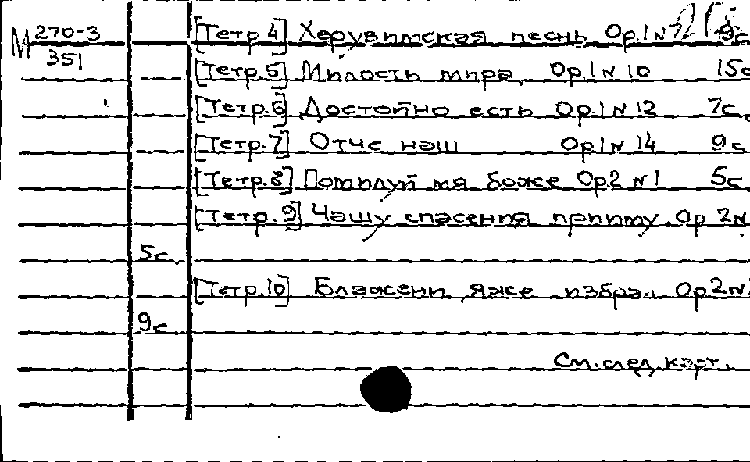 М 270-3 [Тетр.4] Херувимская песнь Ор.1 №
351 [Тетр.5] Милость мира, Ор.1 № 10 15с
[Тетр.6] Достойно есть Ор.1 № 12 7с.
[Тетр.7] Отче наш Ор1 № 14 9с
[Тетр.8] Помилуй мя боже Ор2 №1 5с
[Тетр.9] Чашу спасения прииму Ор 2 №
5с.
[Тетр.10] Блажени яже избра.. Ор2 №
9с
См.след.карт.